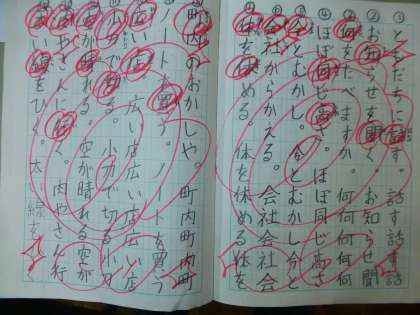 ともだちに話す。話す話す話
お知らせを聞く。お知らせ聞
何をたべますか。何何何何
ほぼ同じ高さ。ほぼ同じ高さ
今とむかし。今とむかし今と
会社からかえる。会社会社会社
体を休める。体を休める体を
町内のおかしや。町内町内町
ノートを買う。ノートを買う
広い店。広い店広い店
小刀で切る。小刀で切る小刀
空が晴れる。空が晴れる空が
肉やさんに行く。肉やさん行
太い線をひく。太い線を